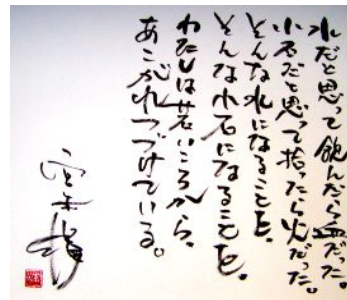 水だと思って飲んだら血だった。
小石だと思って拾ったら火だった。
そんな水になることを。
そんな小石になることを。
わたしは若いころから、
あこがれつづけている。